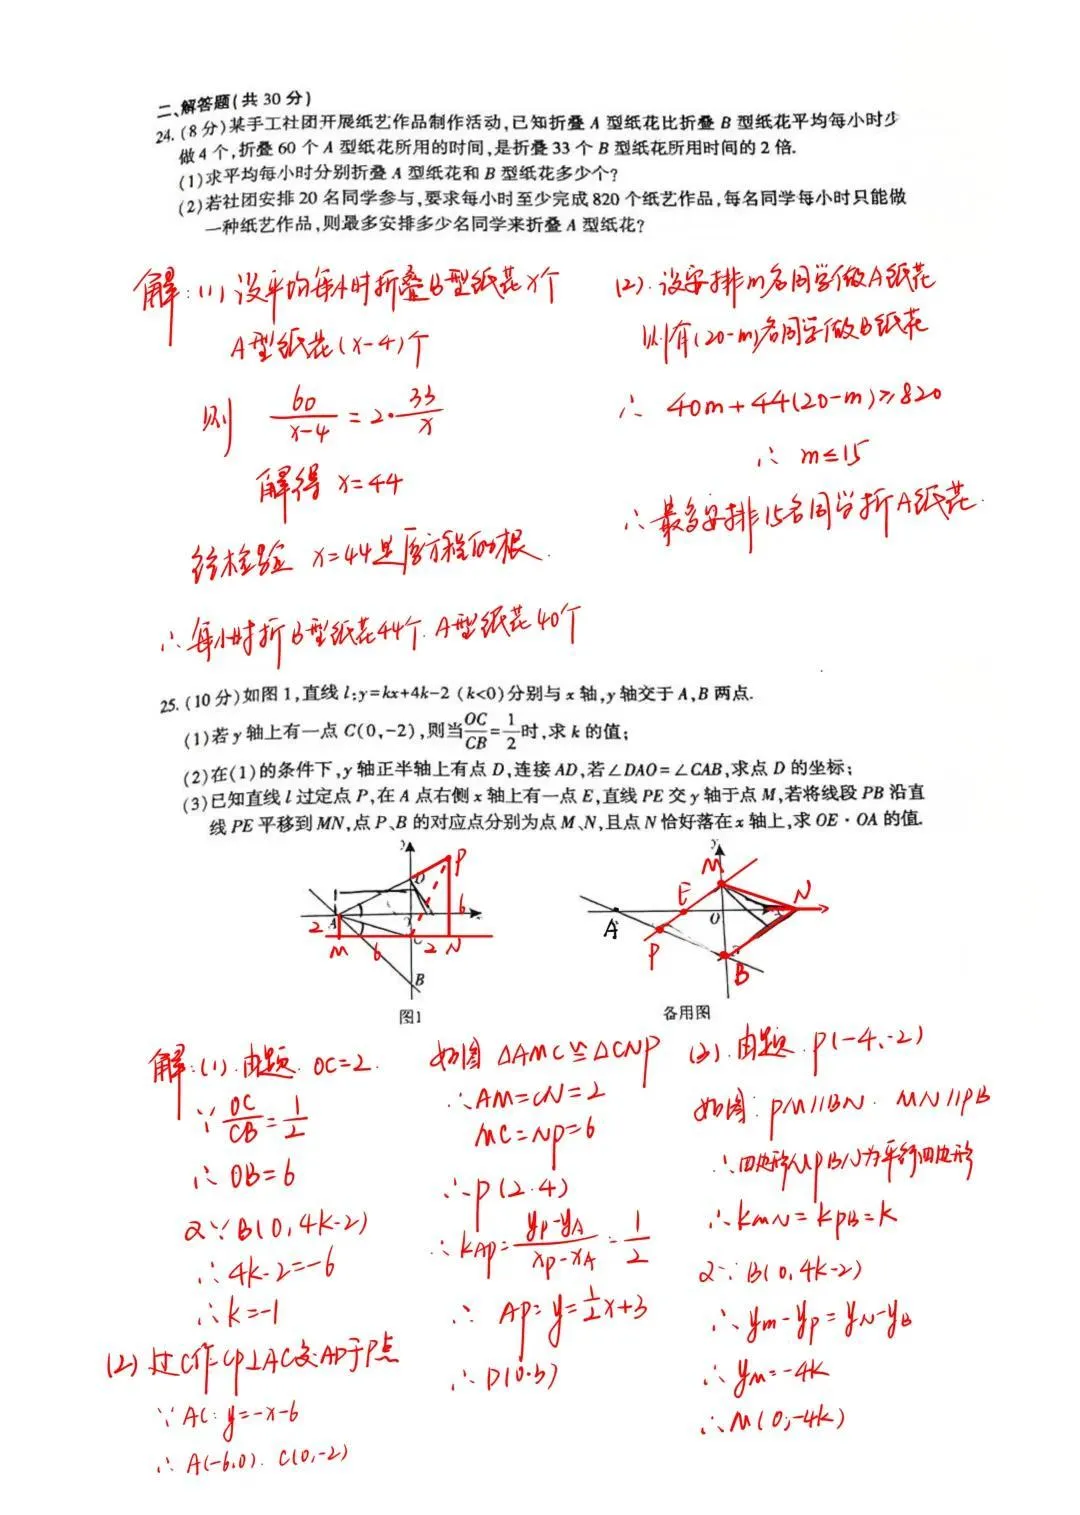 二、解答题(共 30 分)
24.(8 分)某手工社团开展纸艺作品制作活动,已知折叠 A 型纸花比折叠 B 型纸花平均每小时少
做 4 个,折叠 60 个 A 型纸花所用的时间,是折叠 33 个 B 型纸花所用时间的 2 倍.
(1)求平均每小时分别折叠 A 型纸花和 B 型纸花多少个?
(2)若社团安排 20 名同学参与,要求每小时至少完成 820 个纸艺作品,每名同学每小时只能做
一种纸艺作品,则最多安排多少名同学来折叠 A 型纸花?
解:(1)设平均每小时折叠B型纸花x个
A型纸花(x-4)个
则 60/(x-4) = 2·33/x
解得 x=44
经检验 x=44是原方程的根.
∴每小时折B型纸花44个.A型纸花40个
(2).设安排m名同学做A纸花
则有(20-m)名同学做B纸花
∴ 40m+44(20-m)≥820
∴ m≤15
∴最多安排15名同学折A纸花.
25.(10 分)如图 1,直线 l:y=kx+4k-2 (k<0)分别与 x 轴,y 轴交于 A,B 两点.
(1)若 y 轴上有一点 C(0,-2),则当OC/CB=1/2时,求 k 的值;
(2)在(1)的条件下,y 轴正半轴上有点 D,连接 AD,若∠DAO=∠CAB,求点 D 的坐标;
(3)已知直线 l 过定点 P,在 A 点右侧 x 轴上有一点 E,直线 PE 交 y 轴于点 M,若将线段 PB 沿直
线 PE 平移到 MN,点 P、B 的对应点分别为点 M、N,且点 N 恰好落在 x 轴上,求 OE·OA 的值.
y
D
P
A
6
x
2
M
6
C
2
N
B
图1
y
M
E
N
A
O
P
B
备用图
解:(1).由题.OC=2.
∵ OC/CB=1/2
∴ OB=6
又∵B(0,4k-2)
∴4k-2=-6
∴k=-1
(2)过C作CP⊥AC交AD于P点
∵ AC:y=-x-6
∴ A(-6,0). C(0,-2)
如图 △AMC≌△CNP
∴AM=CN=2
MC=NP=6
∴P(2.4)
∴kAP=(yP-yA)/(xP-xA)=1/2
∴ AP=y=1/2x+3
∴D(0.3)
(3).由题.P(-4,-2)
如图:PM//BN. MN//PB
∴四边形MPBN为平行四边形
∴kMN=kPB=k
又∵B(0,4k-2)
∴yM-yP=yN-yB
∴yM=-4k
∴M(0,-4k)